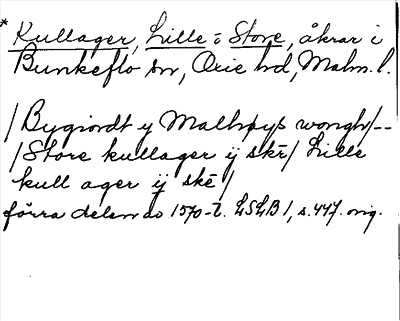 * Kullager, Lille o Store, åkrar i
Bunkeflo sn, Oxie hd, Malm. l.
/ Bygiordt y Malthøys wongh / --
/ Store kullager ÿ skē / Lille
kull ager ÿ skē /
förra delen av 1570-t. LSLB 1, s. 447. orig.